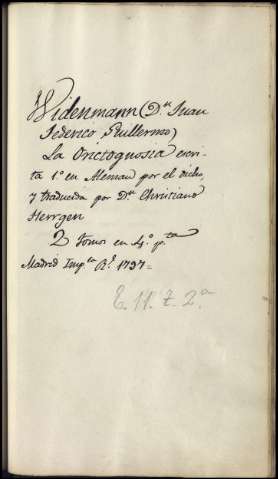 Widenmann (Dn. Juan
Federico Guillermo)
La Orictognosia escri-
ta 1º. en Aleman por el dicho,
y traducida por Dn. Christiano
Herrgen
2 tomos en 4º. pta
Madrid Impta Rl. 1797=
E. 11. t. 2ª